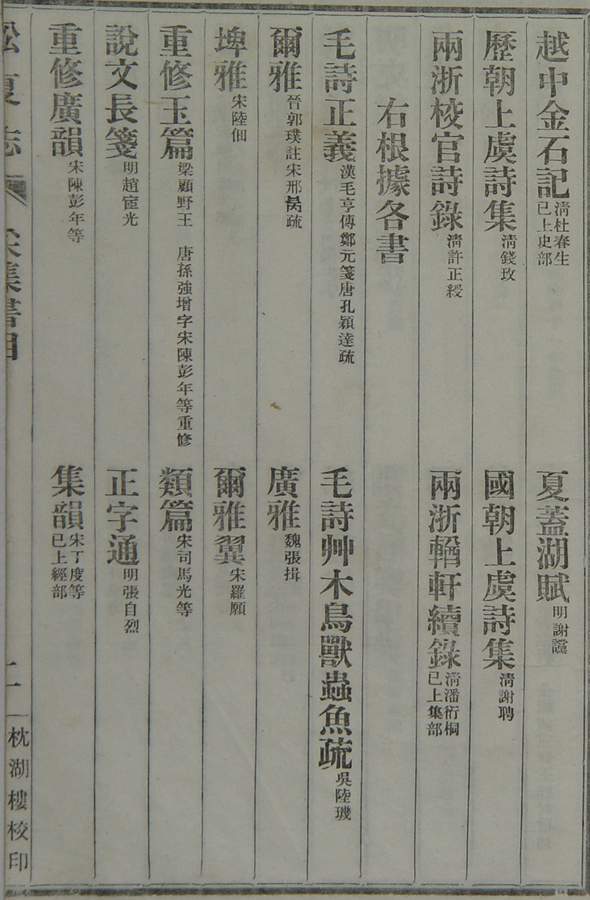 越中金石記 清杜春生 已上史部 夏蓋湖賦 明謝讜
歷朝上虞詩集 清錢玫 國朝上虞詩集 清謝聘
兩浙校官詩錄 清許正綬 兩浙輶軒續錄 清潘衍桐 已上集部
右根據各書
毛詩正義 漢毛亨傳鄭元箋唐孔穎達疏 毛詩艸木鳥獸蟲魚疏 吳陸璣
爾雅 晉郭璞註宋邢昺疏 廣雅 魏張揖
埤雅 宋陸佃 爾雅翼 宋羅願
重修玉篇 梁顧野王 唐孫強增字宋陳彭年等重修 類篇 宋司馬光等
說文長箋 明趙宧光 正字通 明張自烈
重修廣韻 宋陳彭年等 集韻 宋丁度等 已上經部
松夏志 采集書目 二 枕湖樓校印